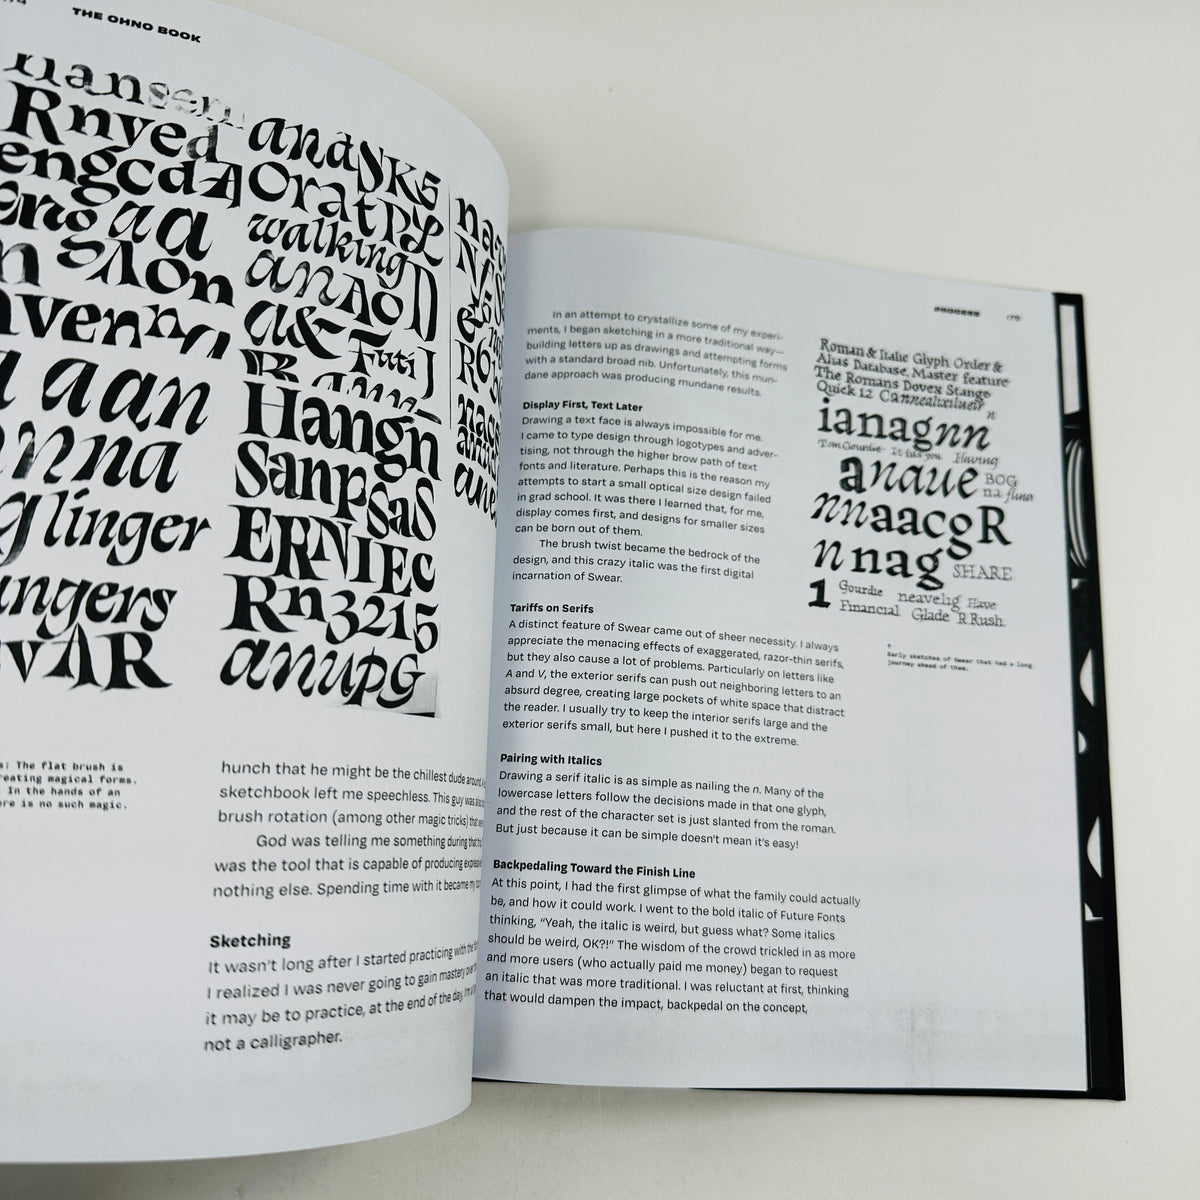 THE OHNO BOOK
Rnyed
engcdA
aa
walking
a&
Tuti J
aan
nna
glinger
ngers
vAR
andSK5
OratPL
anAoD
Hangn
SanpsaS
ERNIEc
Rn3215
anupG
s: The flat brush is
reating magical forms.
In the hands of an
re is no such magic.
hunch that he might be the chillest dude around
sketchbook left me speechless. This guy was
brush rotation (among other magic tricks)
God was telling me something during
was the tool that is capable of producing
nothing else. Spending time with it became my
Sketching
It wasn't long after I started practicing with the
I realized I was never going to gain mastery
it may be to practice, at the end of the day,
not a calligrapher.
PROCESS
In an attempt to crystallize some of my experi-
ments, I began sketching in a more traditional way—
building letters up as drawings and attempting forms
with a standard broad nib. Unfortunately, this mun-
dane approach was producing mundane results.
Display First, Text Later
Drawing a text face is always impossible for me.
I came to type design through logotypes and adver-
tising, not through the higher brow path of text
fonts and literature. Perhaps this is the reason my
attempts to start a small optical size design failed
in grad school. It was there I learned that, for me,
display comes first, and designs for smaller sizes
can be born out of them.
The brush twist became the bedrock of the
design, and this crazy italic was the first digital
incarnation of Swear.
Tariffs on Serifs
A distinct feature of Swear came out of sheer necessity. I always
appreciate the menacing effects of exaggerated, razor-thin serifs,
but they also cause a lot of problems. Particularly on letters like
A and V, the exterior serifs can push out neighboring letters to an
absurd degree, creating large pockets of white space that distract
the reader. I usually try to keep the interior serifs large and the
exterior serifs small, but here I pushed it to the extreme.
Pairing with Italics
Drawing a serif italic is as simple as nailing the n. Many of the
lowercase letters follow the decisions made in that one glyph,
and the rest of the character set is just slanted from the roman.
But just because it can be simple doesn't mean it's easy!
Backpedaling Toward the Finish Line
At this point, I had the first glimpse of what the family could actually
be, and how it could work. I went to the bold italic of Future Fonts
thinking, “Yeah, the italic is weird, but guess what? Some italics
should be weird, OK?!” The wisdom of the crowd trickled in as more
and more users (who actually paid me money) began to request
an italic that was more traditional. I was reluctant at first, thinking
that would dampen the impact, backpedal on the concept,
Roman & Italic Glyph Order &
Alias Database. Master feature
The Romans Dovex Stange
Quick 12
n
ianagnn
It fits you Having
anaue BOG
na
nnaacgR
nnag SHARE
1 Gourdie neavelig Have
Financial Glade R Rush
Early sketches of Swear that had a long
journey ahead of them.